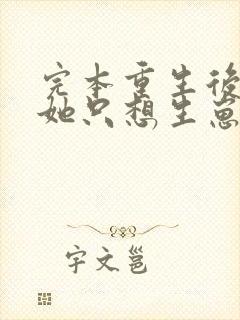 完本重生後
她只想生崽
宇文邕